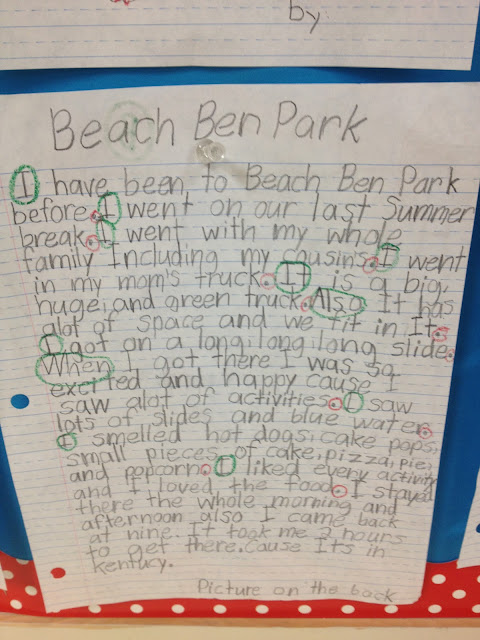 by
Beach Ben Park
I have been to Beach Ben Park
before. I went on our last Summer
break. I went with my whole
family Including my cousin's. I went
in my mom's truck. It is a big,
huge, and green truck. Also It has
alot of space and we fit in It.
I got on a long, long, long slide.
When I got there I was so
exerted and happy cause I
saw alot of activities. I saw
lots of slides and blue water.
I smelled hot dogs, cake pops,
small pieces of cake, pizza, pie,
and popcorn. I liked every activity
and I loved the food. I stayed
there the whole morning and
afternoon also I came back
at nine. It took me 2 hours
to get there. Cause Its in
kentucy.
Picture on the back